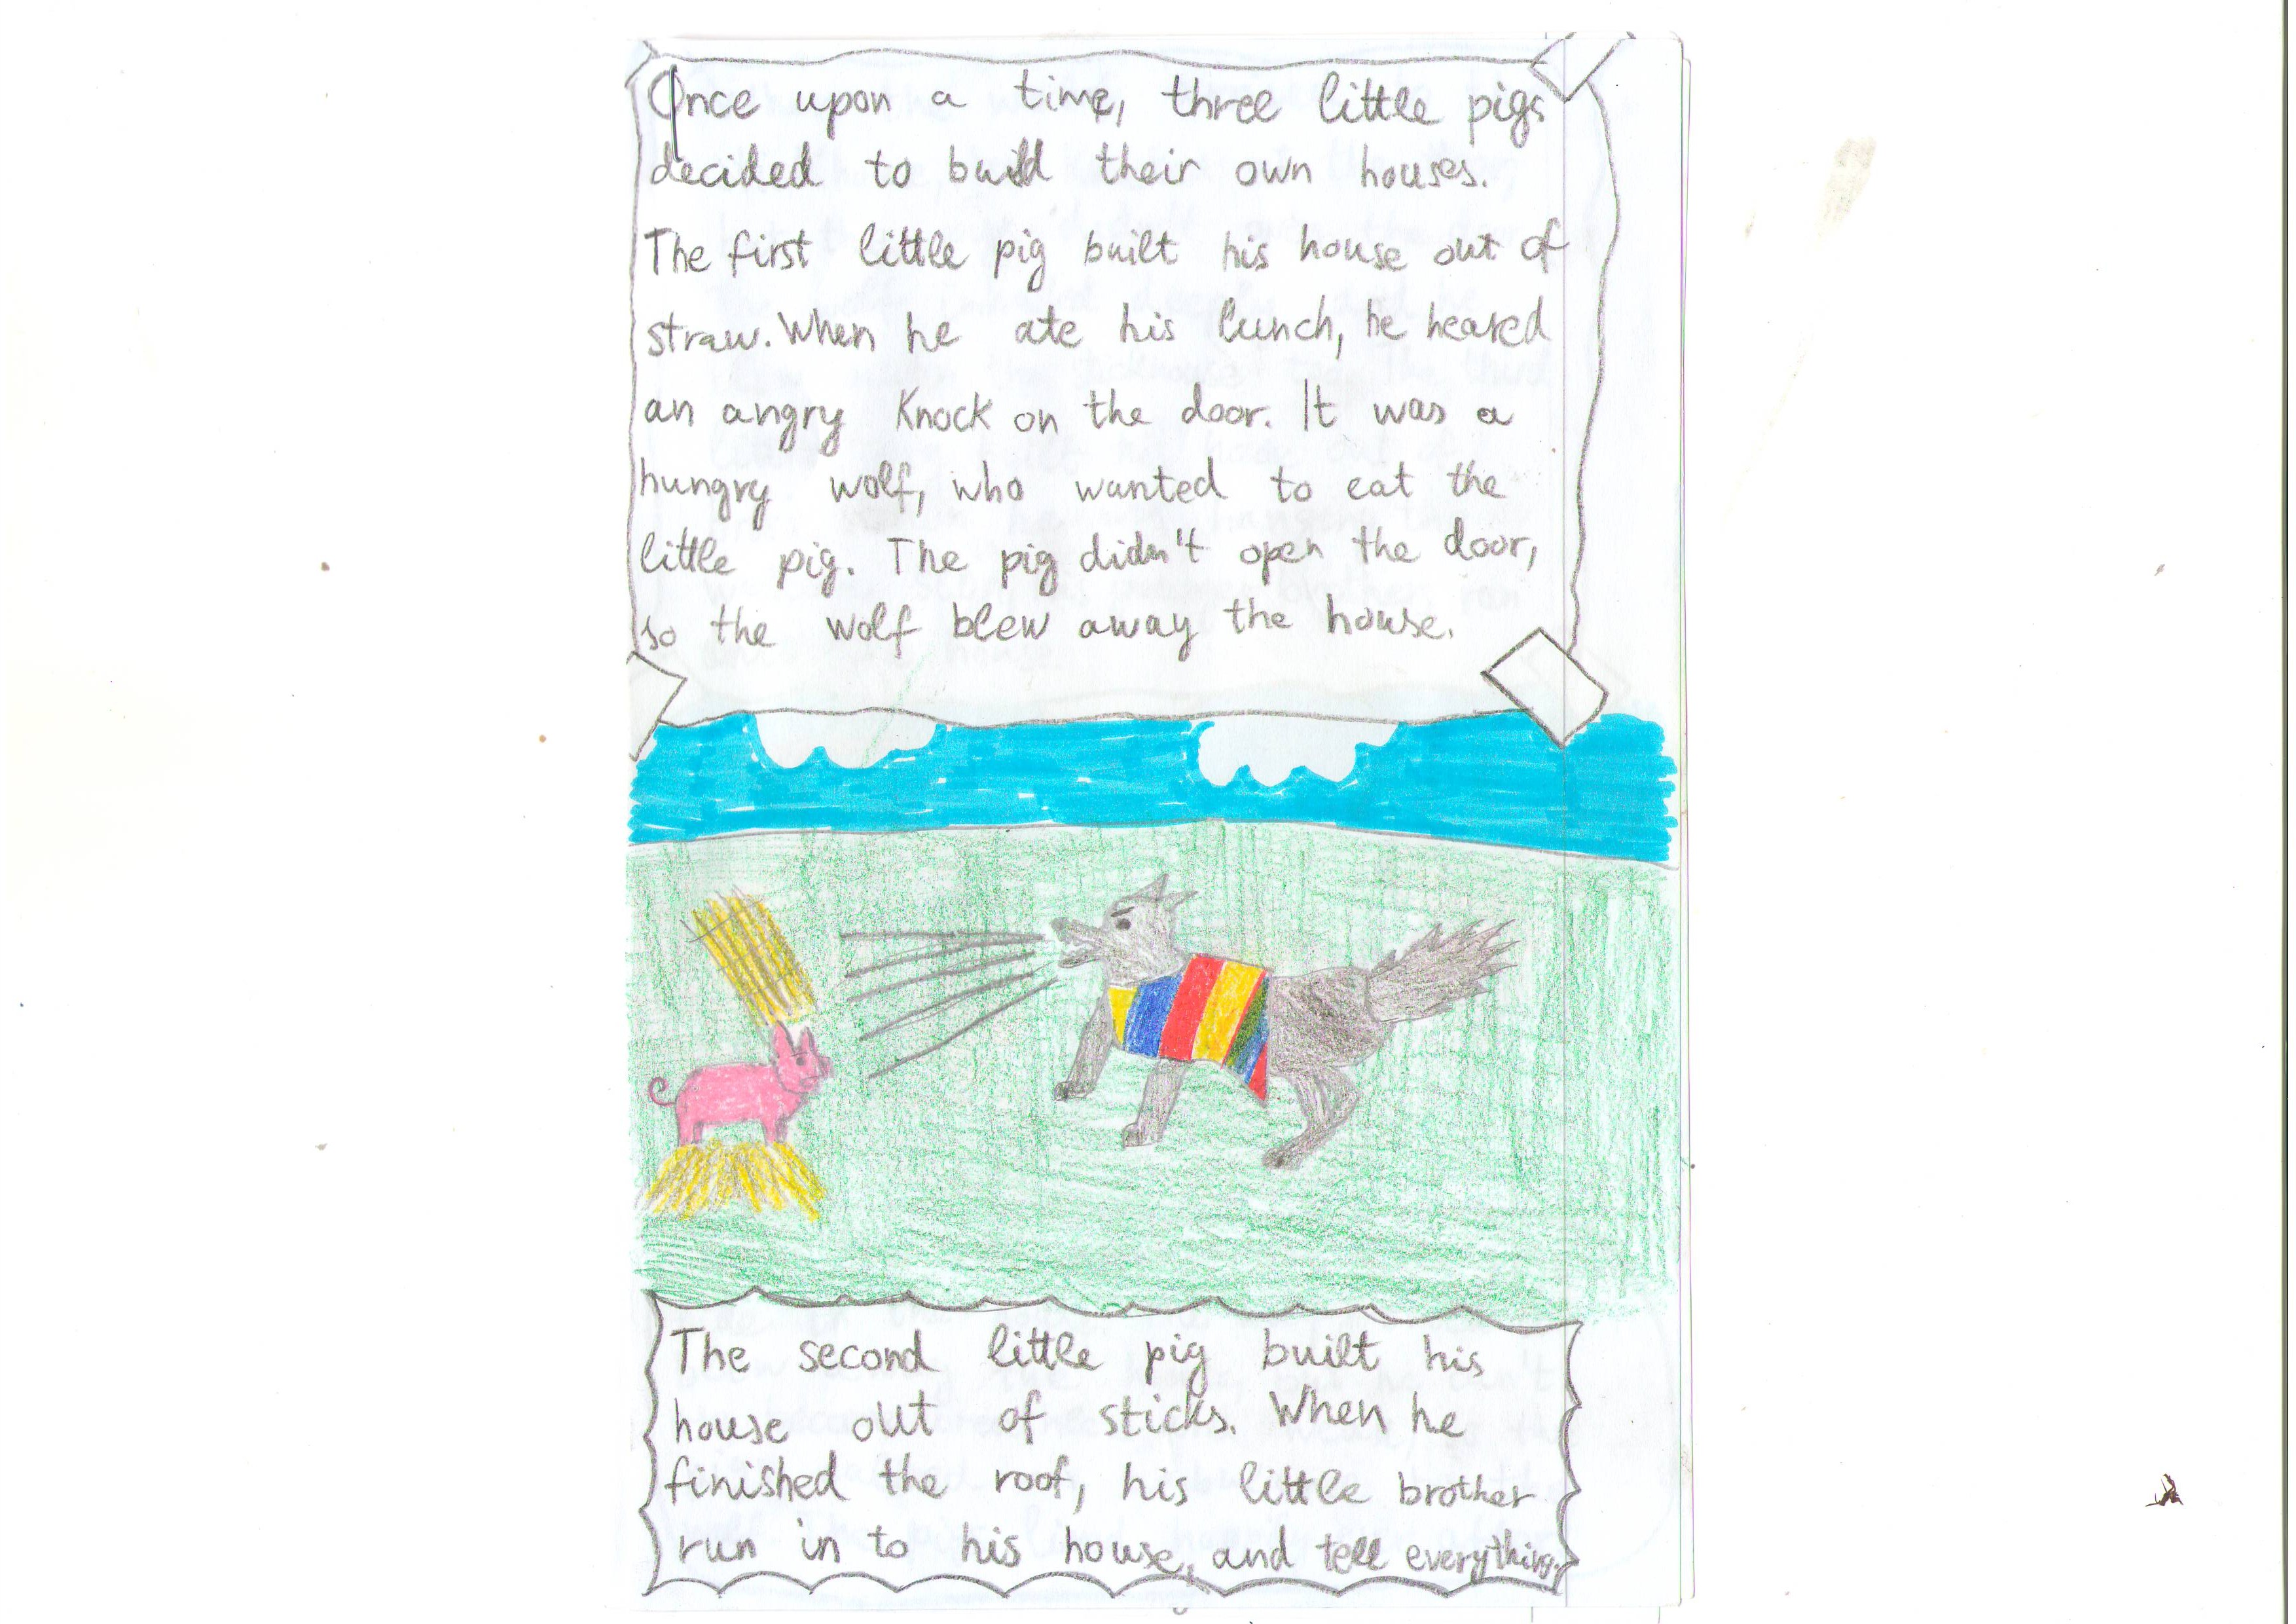 Once upon a time, three little pigs
decided to build their own houses.
The first little pig built his house out of
straw. When he ate his lunch, he heared
an angry Knock on the door. It was a
hungry wolf, who wanted to eat the
little pig. The pig didn't open the door,
so the wolf blew away the house.
The second little pig built his
house out of sticks. When he
finished the roof, his little brother
run in to his house, and tell everything.